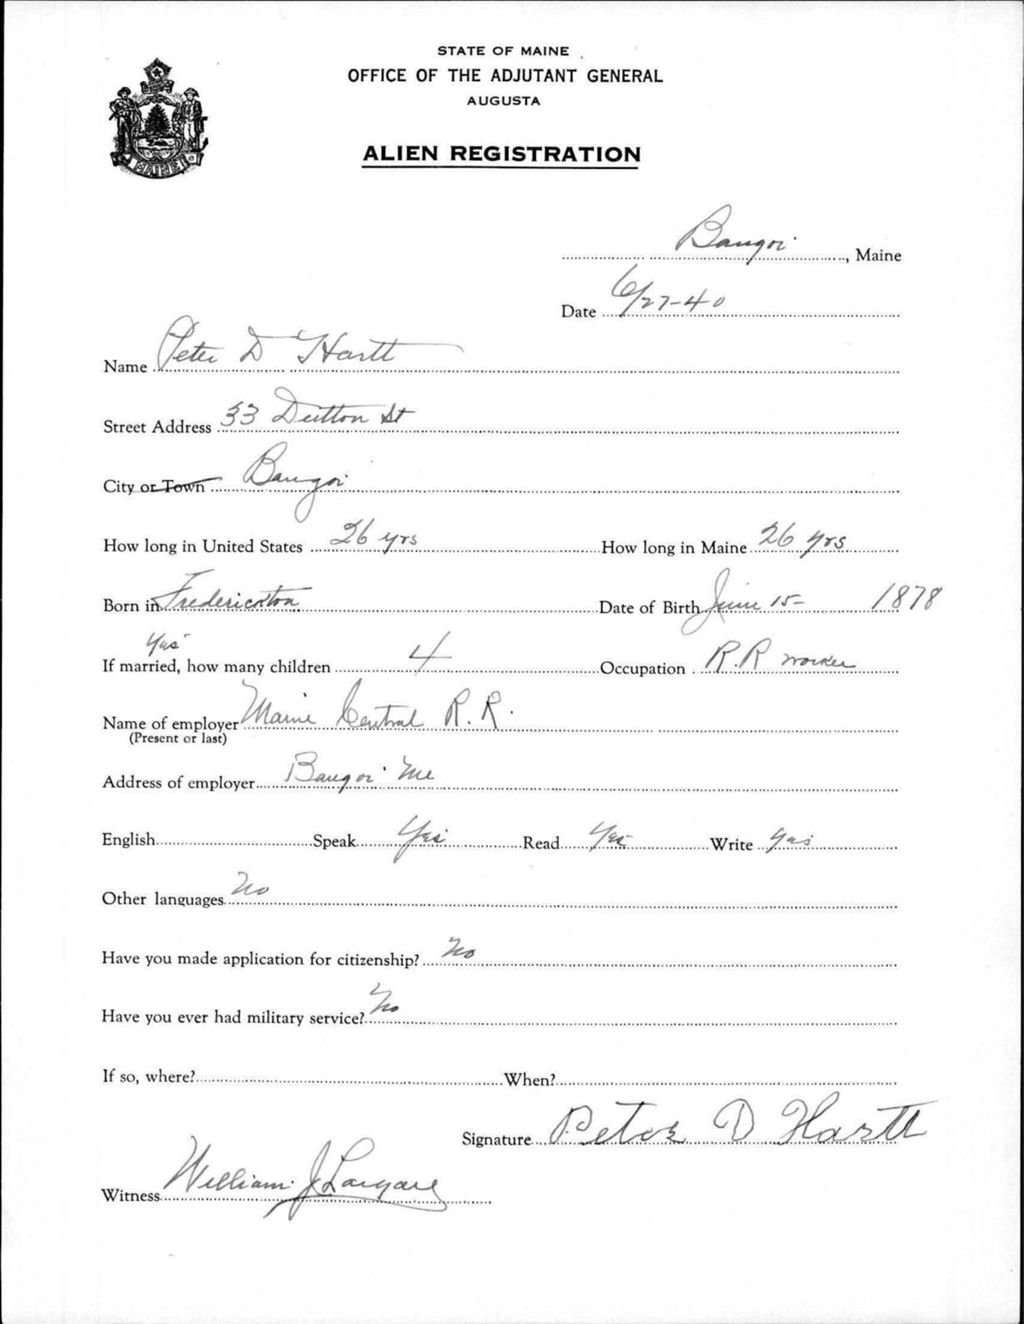 STATE OF MAINE
OFFICE OF THE ADJUTANT GENERAL
AUGUSTA
ALIEN REGISTRATION
MAINE
Bangor, Maine
Date 6/27-40
Name Peter D Hartt
Street Address 33 Dutton St
City or Town Bangor
How long in United States 26 yrs How long in Maine 26 yrs
Born in Fredericton Date of Birth June 15- 1878
Yes
If married, how many children 4 Occupation R.R worker
Name of employer Maine Central R.R.
(Present or last)
Address of employer Bangor Me
English Speak Yes Read Yes Write Yes
Other languages No
Have you made application for citizenship? No
Have you ever had military service? No
If so, where? When?
Signature Peter D Hartt
Witness William J